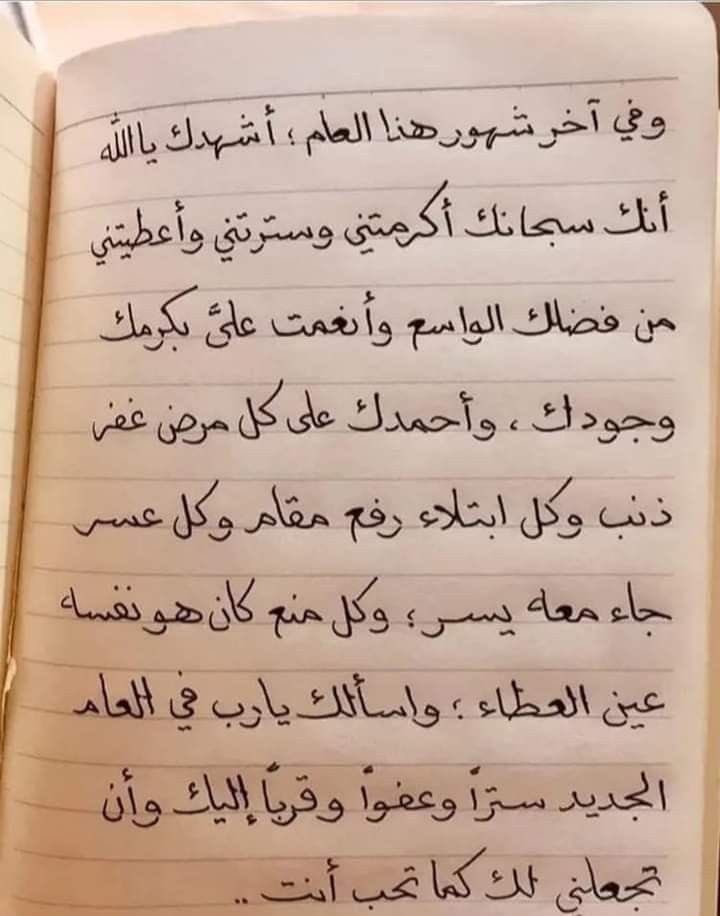 وفي آخر شهور هذا العام ؛ أشهدك يا الله
أنك سبحانك أكرمتني وسترتني وأعطيتني
من فضلك الواسع وأنعمت عليَّ بكرمك
وجودك ، وأحمدك على كل مرض غفر
ذنب وكل ابتلاء رفع مقام وكل عسر
جاء معه يسر ؛ وكل منع كان هو نفسه
عين العطاء ؛ واسألك يارب في العام
الجديد ستراً وعفواً وقرباً إليك وأن
تجعلني لك كما تحب أنت ..